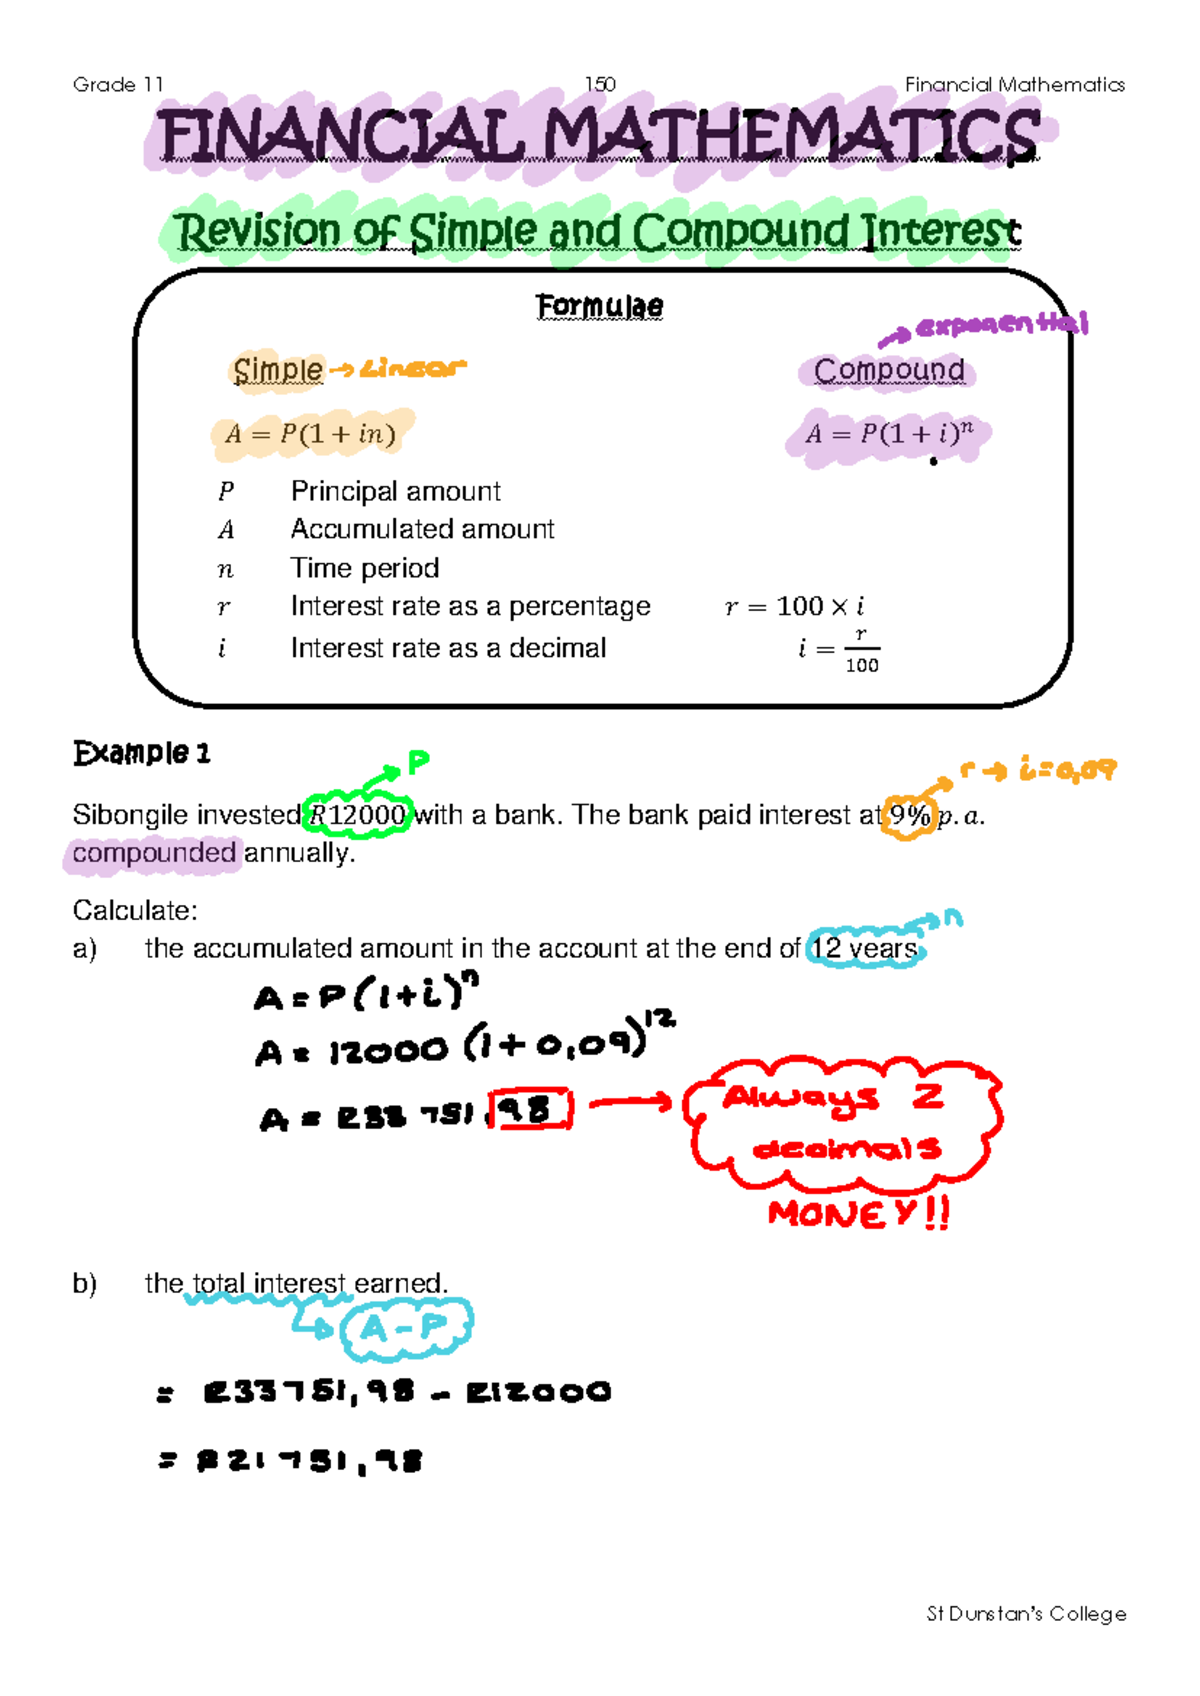 Grade 11 150 Financial Mathematics
FINANCIAL MATHEMATICS
Revision of Simple and Compound Interest
Formulae
→ exponential
Simple → Linear Compound
A = P(1 + in) A = P(1 + i)ⁿ
P Principal amount
A Accumulated amount
n Time period
r Interest rate as a percentage r = 100 × i
i Interest rate as a decimal i = r/100
Example 1
P r → i = 0,09
Sibongile invested R12000 with a bank. The bank paid interest at 9% p. a.
compounded annually.
Calculate:
n
a) the accumulated amount in the account at the end of 12 years.
A = P(1+i)ⁿ
A = 12000 (1 + 0,09)¹²
A = R33 751,98 → Always 2
decimals
MONEY!!
b) the total interest earned.
A - P
= R33751,98 - R12000
= R21 751,98
St Dunstan's College